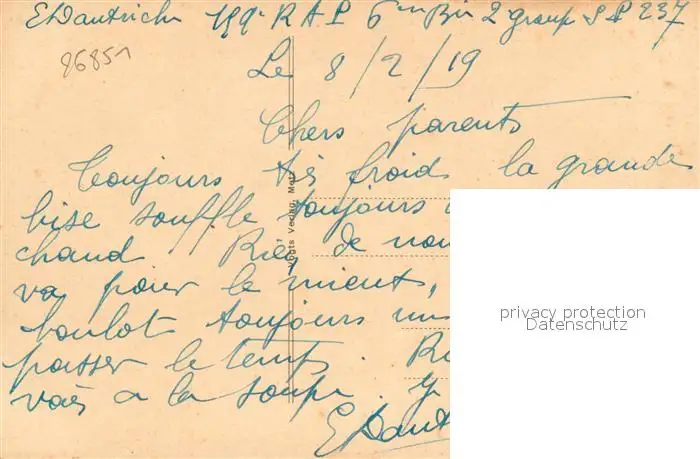 E Dautriche 199e R A P 6me Bie 2e group S P 237
26851
Le 8/2/19
Chers parents
Toujours très froid la grande
bise souffle toujours
chaud Rien de nou
va pour le mieux,
boulot toujours
passer le temps. Ri
vais a la soupe. y
E Daut
Vogts Verlag, Metz
privacy protection
Datenschutz